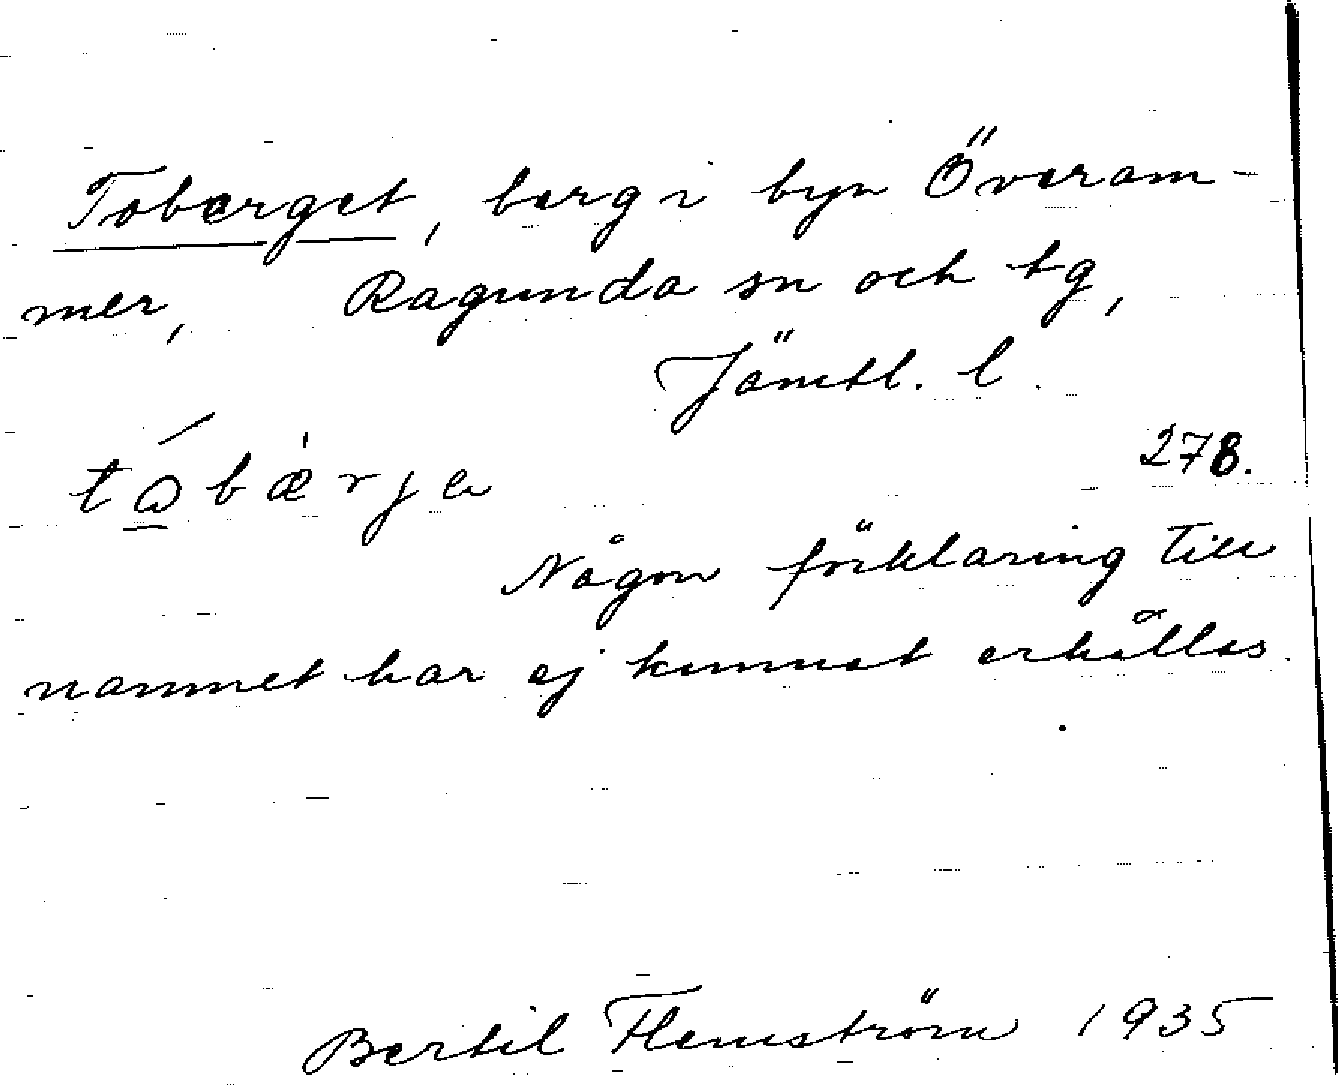 Toberget, berg i byn Överam-
mer, Ragunda sn och tg,
Jämtl. l.
278.
tɷ̀bæ̀rjɑ
Någon förklaring till
namnet har ej kunnat erhållas.
Bertil Flemström 1935